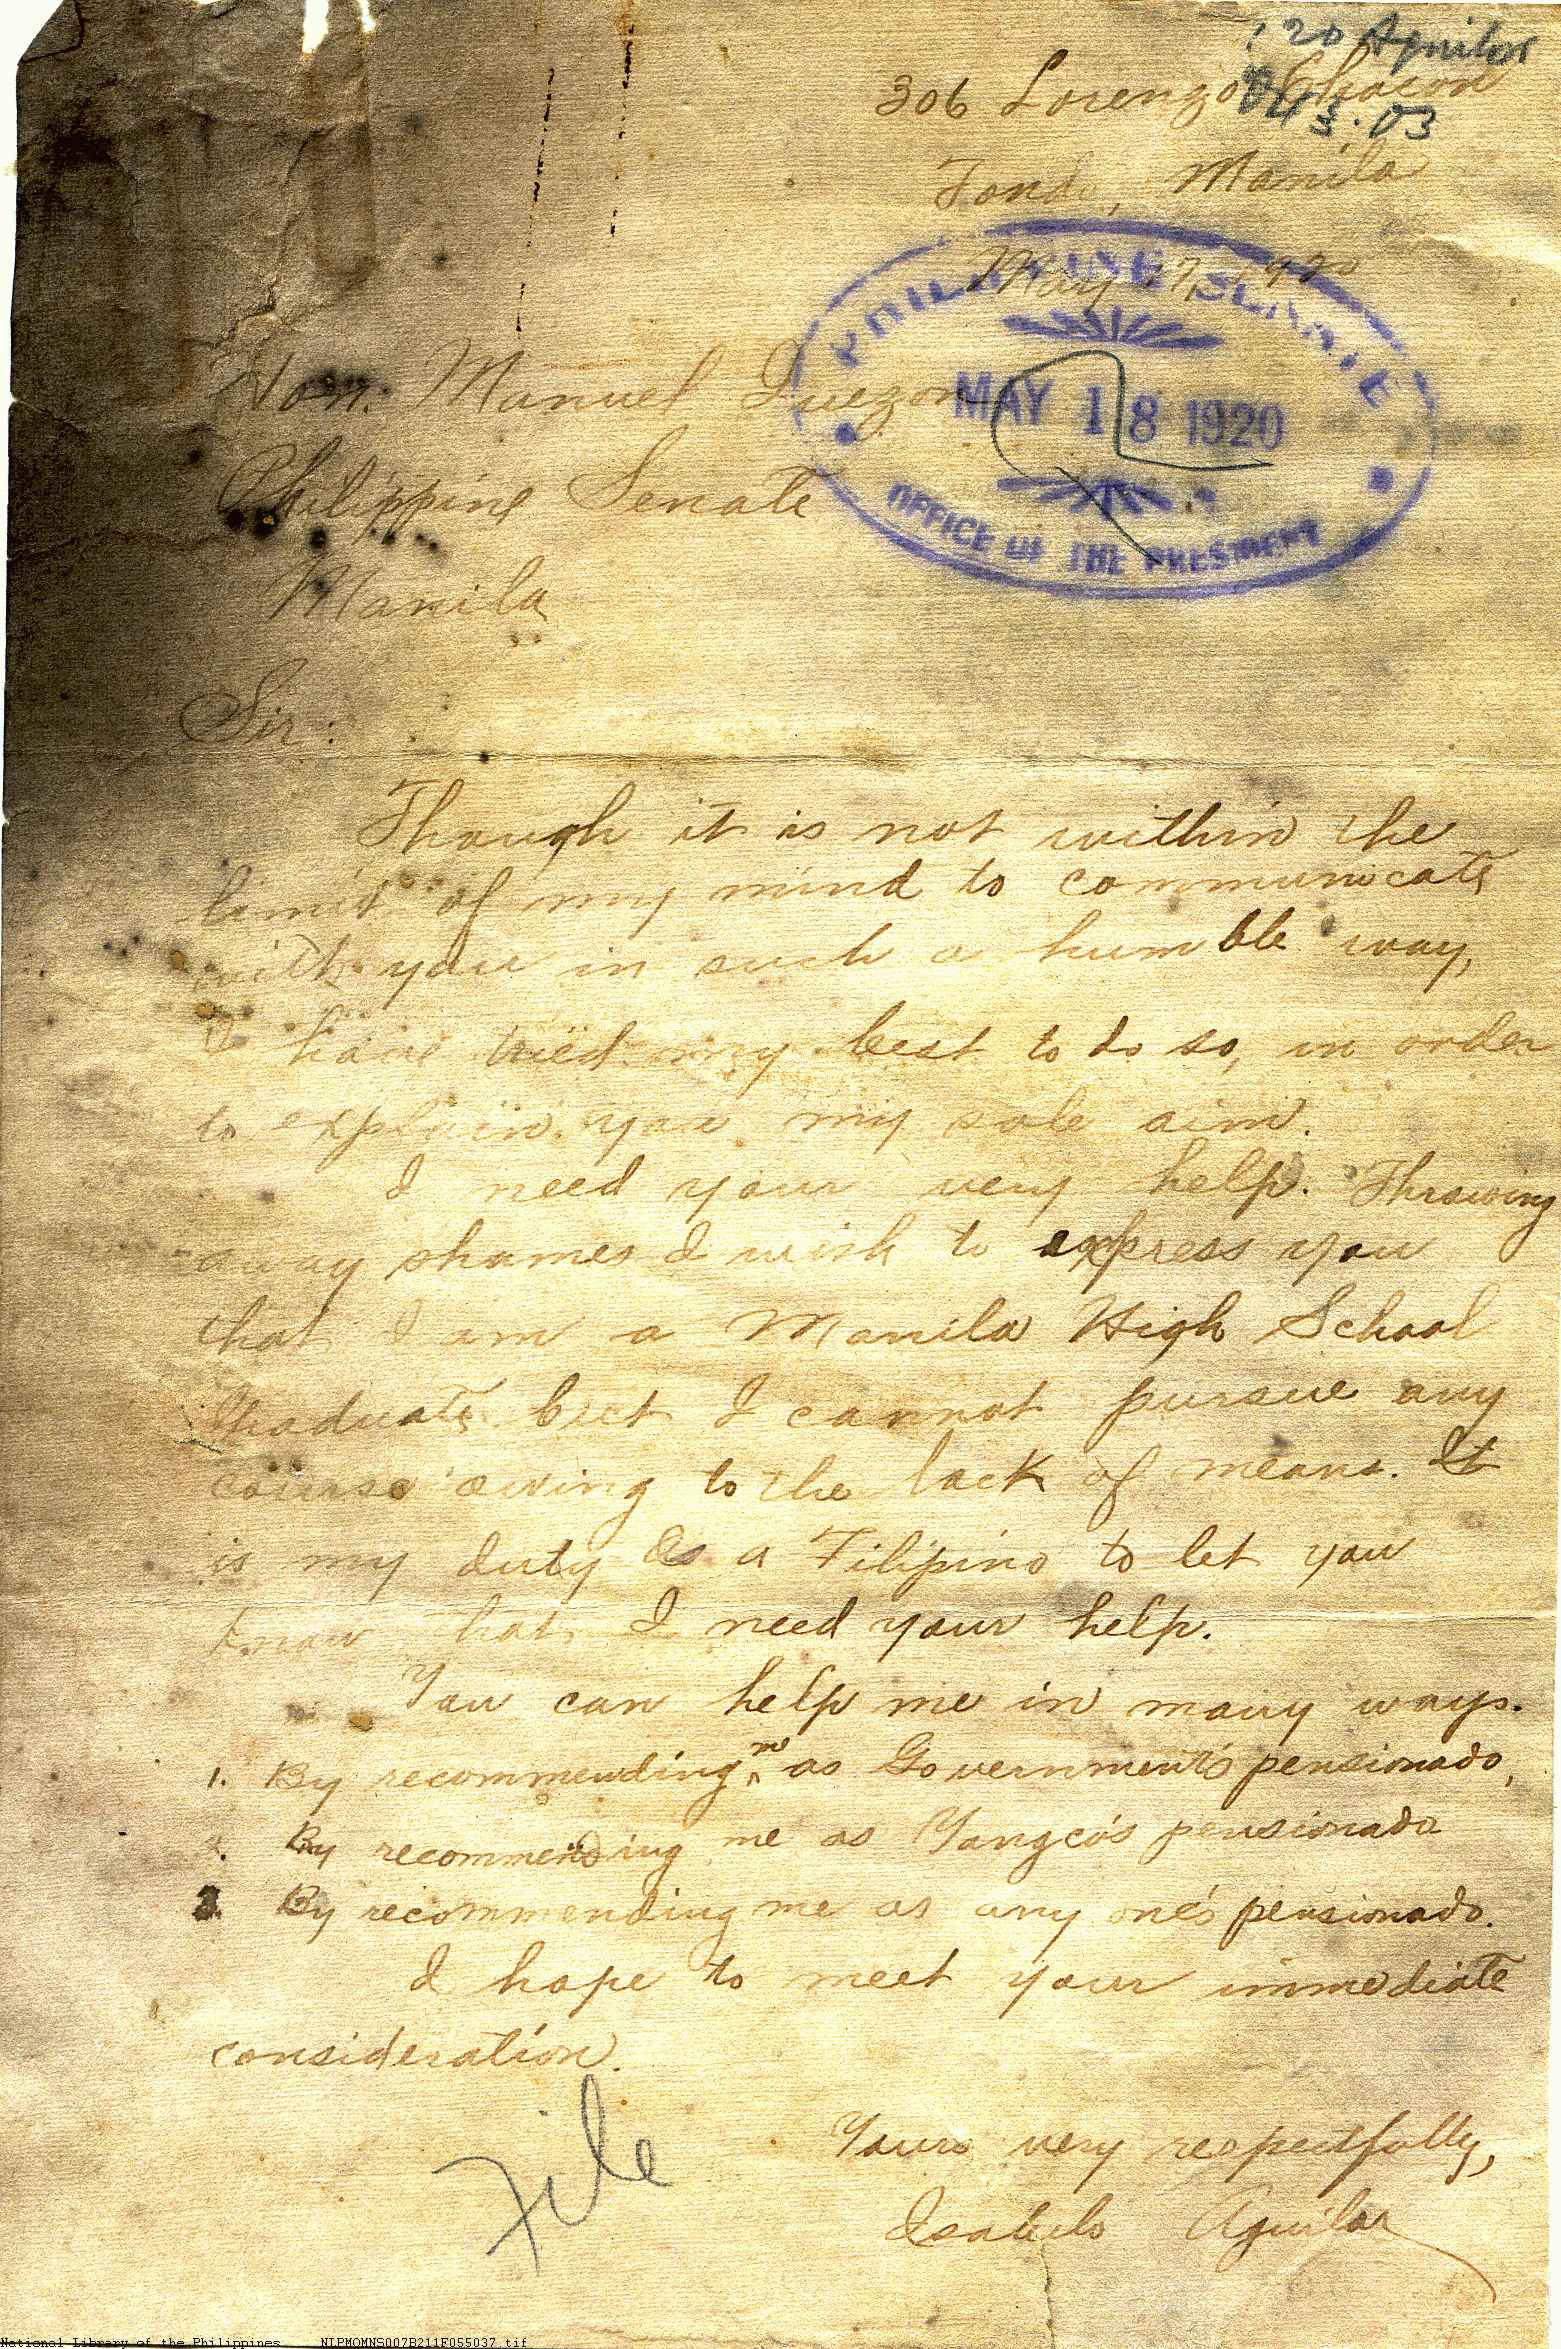 306 Lorenzo Chacon
Tondo, Manila
May 17, 1920
PHILIPPINE SENATE
MAY 18 1920
OFFICE OF THE PRESIDENT
Hon. Manuel Quezon
Philippine Senate
Manila
Sir:
Though it is not within the
limit of my mind to communicate
with you in such a humble way,
I have tried my best to do so, in order
to explain you my sole aim.
I need your very help. Throwing
away shames I wish to express you
that I am a Manila High School
Graduate but I cannot pursue any
course owing to the lack of means. It
is my duty as a Filipino to let you
know that I need your help.
You can help me in many ways.
1. By recommending me as Government's pensionado,
2. By recommending me as Yangco's pensionado
3. By recommending me as any one's pensionado.
I hope to meet your immediate
consideration.
Yours very respectfully,
Isabelo Aguilar
File
National Library of the Philippines NLPMOMNS007B211F055037.tif